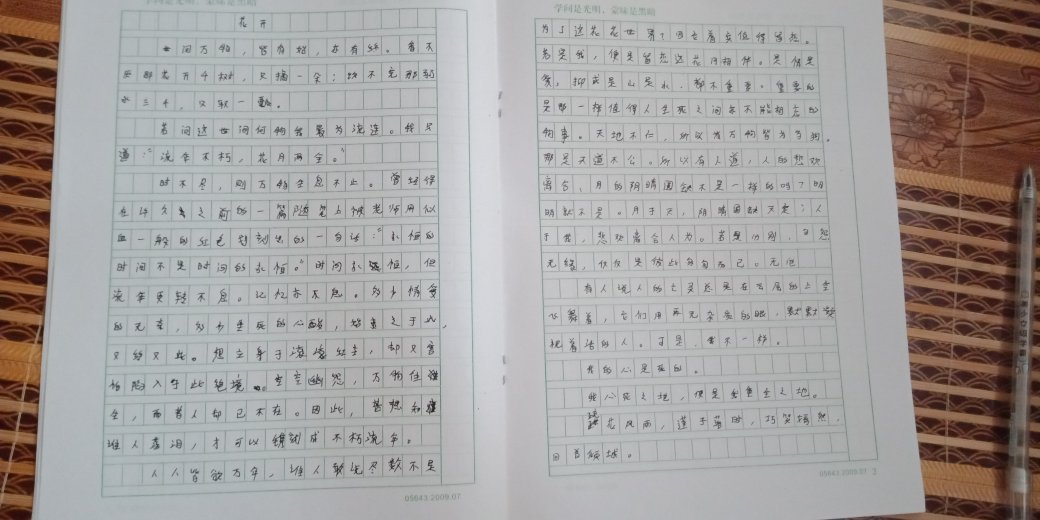 学问是光明，蒙昧是黑暗
花开
世间万物，皆有始，亦有终。看不
尽那花开千树，只摘一朵；饮不完那弱
水三千，只取一瓢。
若问这世间何物最为流连。我只
道：“流年不朽，花月两全。”
时不尽，则万物生息不止。曾经保
在许久之前的一篇随笔上被老师用似
血一般的红色刻出的一句话：“永恒的
时间不是时间的永恒。”时间永恒，但
流年更转不息。记忆亦不息。多少情爱
的无奈，多少生死的心酸，始于此，
又终又此。想立身于滚滚红尘，却又害
怕陷入于此绝境。空空幽怨，万物住
全，而昔人却已不在。因此，昔想和
谁人老泪，才可以铸就成不朽流年。
人人皆欲万年，谁人敢说尽数不是
学问是光明，蒙昧是黑暗
为了这花花世界？因它着实值得留恋。
若是我，便是留恋这花月相伴。是情是
爱，抑或是山是水，都不重要。重要的
是那一样值得人生死之间亦不能相忘的
物事。天地不仁，所以有万物皆为刍狗。
都是天道不公。所以有人道，人的悲欢
离合、月的阴晴圆缺不是一样的吗？明
明就不是。月于天，阴晴圆缺天定；人
于世，悲欢离合人为。若是分别，可怨
无缘，仅仅是彼此的自而已。无他
有人说人的亡灵总是在云层的上空
飞舞着，它们用再无杂质的眼，默默凝
视着活的人。可是，我不一样。
我的心是死的。
我心死之地，便是我重生之地。
花风雨，莲子落时，巧笑嫣然，
回首倾城。
05643.2009.07
05643.2009.07 3